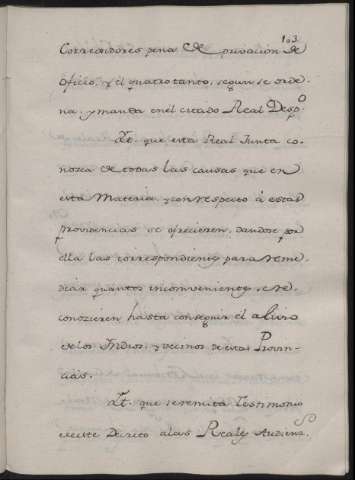 103
Corregidores pena de privación de
Oficio, y el quatro tanto, segun se orde
na, y manda en el citado Real Despº
Yt. que esta Real Junta co
nosca de todas las causas que en
esta Materia, y con respecto à estas
Providencias se ofrecieren, dandose por
ella las correspondientes para reme
diar quantos inconvenientes se re
conozieren hasta conseguir el alivio
de los Indios, y vecinos de estas Provin
cias.
Yt. que se remita Testimonio
de este Decreto a las Reales Audiens.